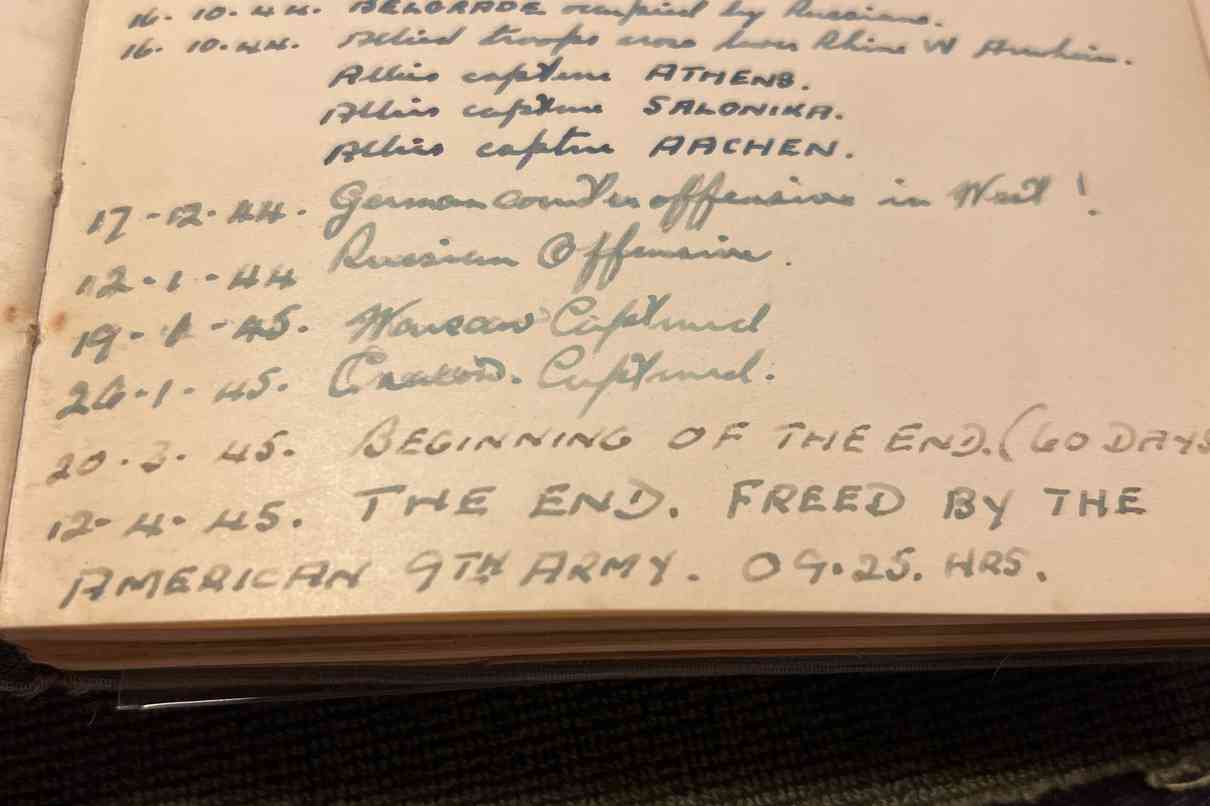 16. 10. 44. BELGRADE occupied by Russians.
16. 10. 44. Allied troops cross lower Rhine W Arnhem.
Allies capture ATHENS.
Allies capture SALONIKA.
Allies capture AACHEN.
17-12-44. German counter offensive in West!
12-1-44 Russian Offensive.
19-1-45. Warsaw Captured
26-1-45. Cracow. Captured.
20.3.45. BEGINNING OF THE END. (60 DAYS
12-4-45. THE END. FREED BY THE
AMERICAN 9TH ARMY. 09.25. HRS.